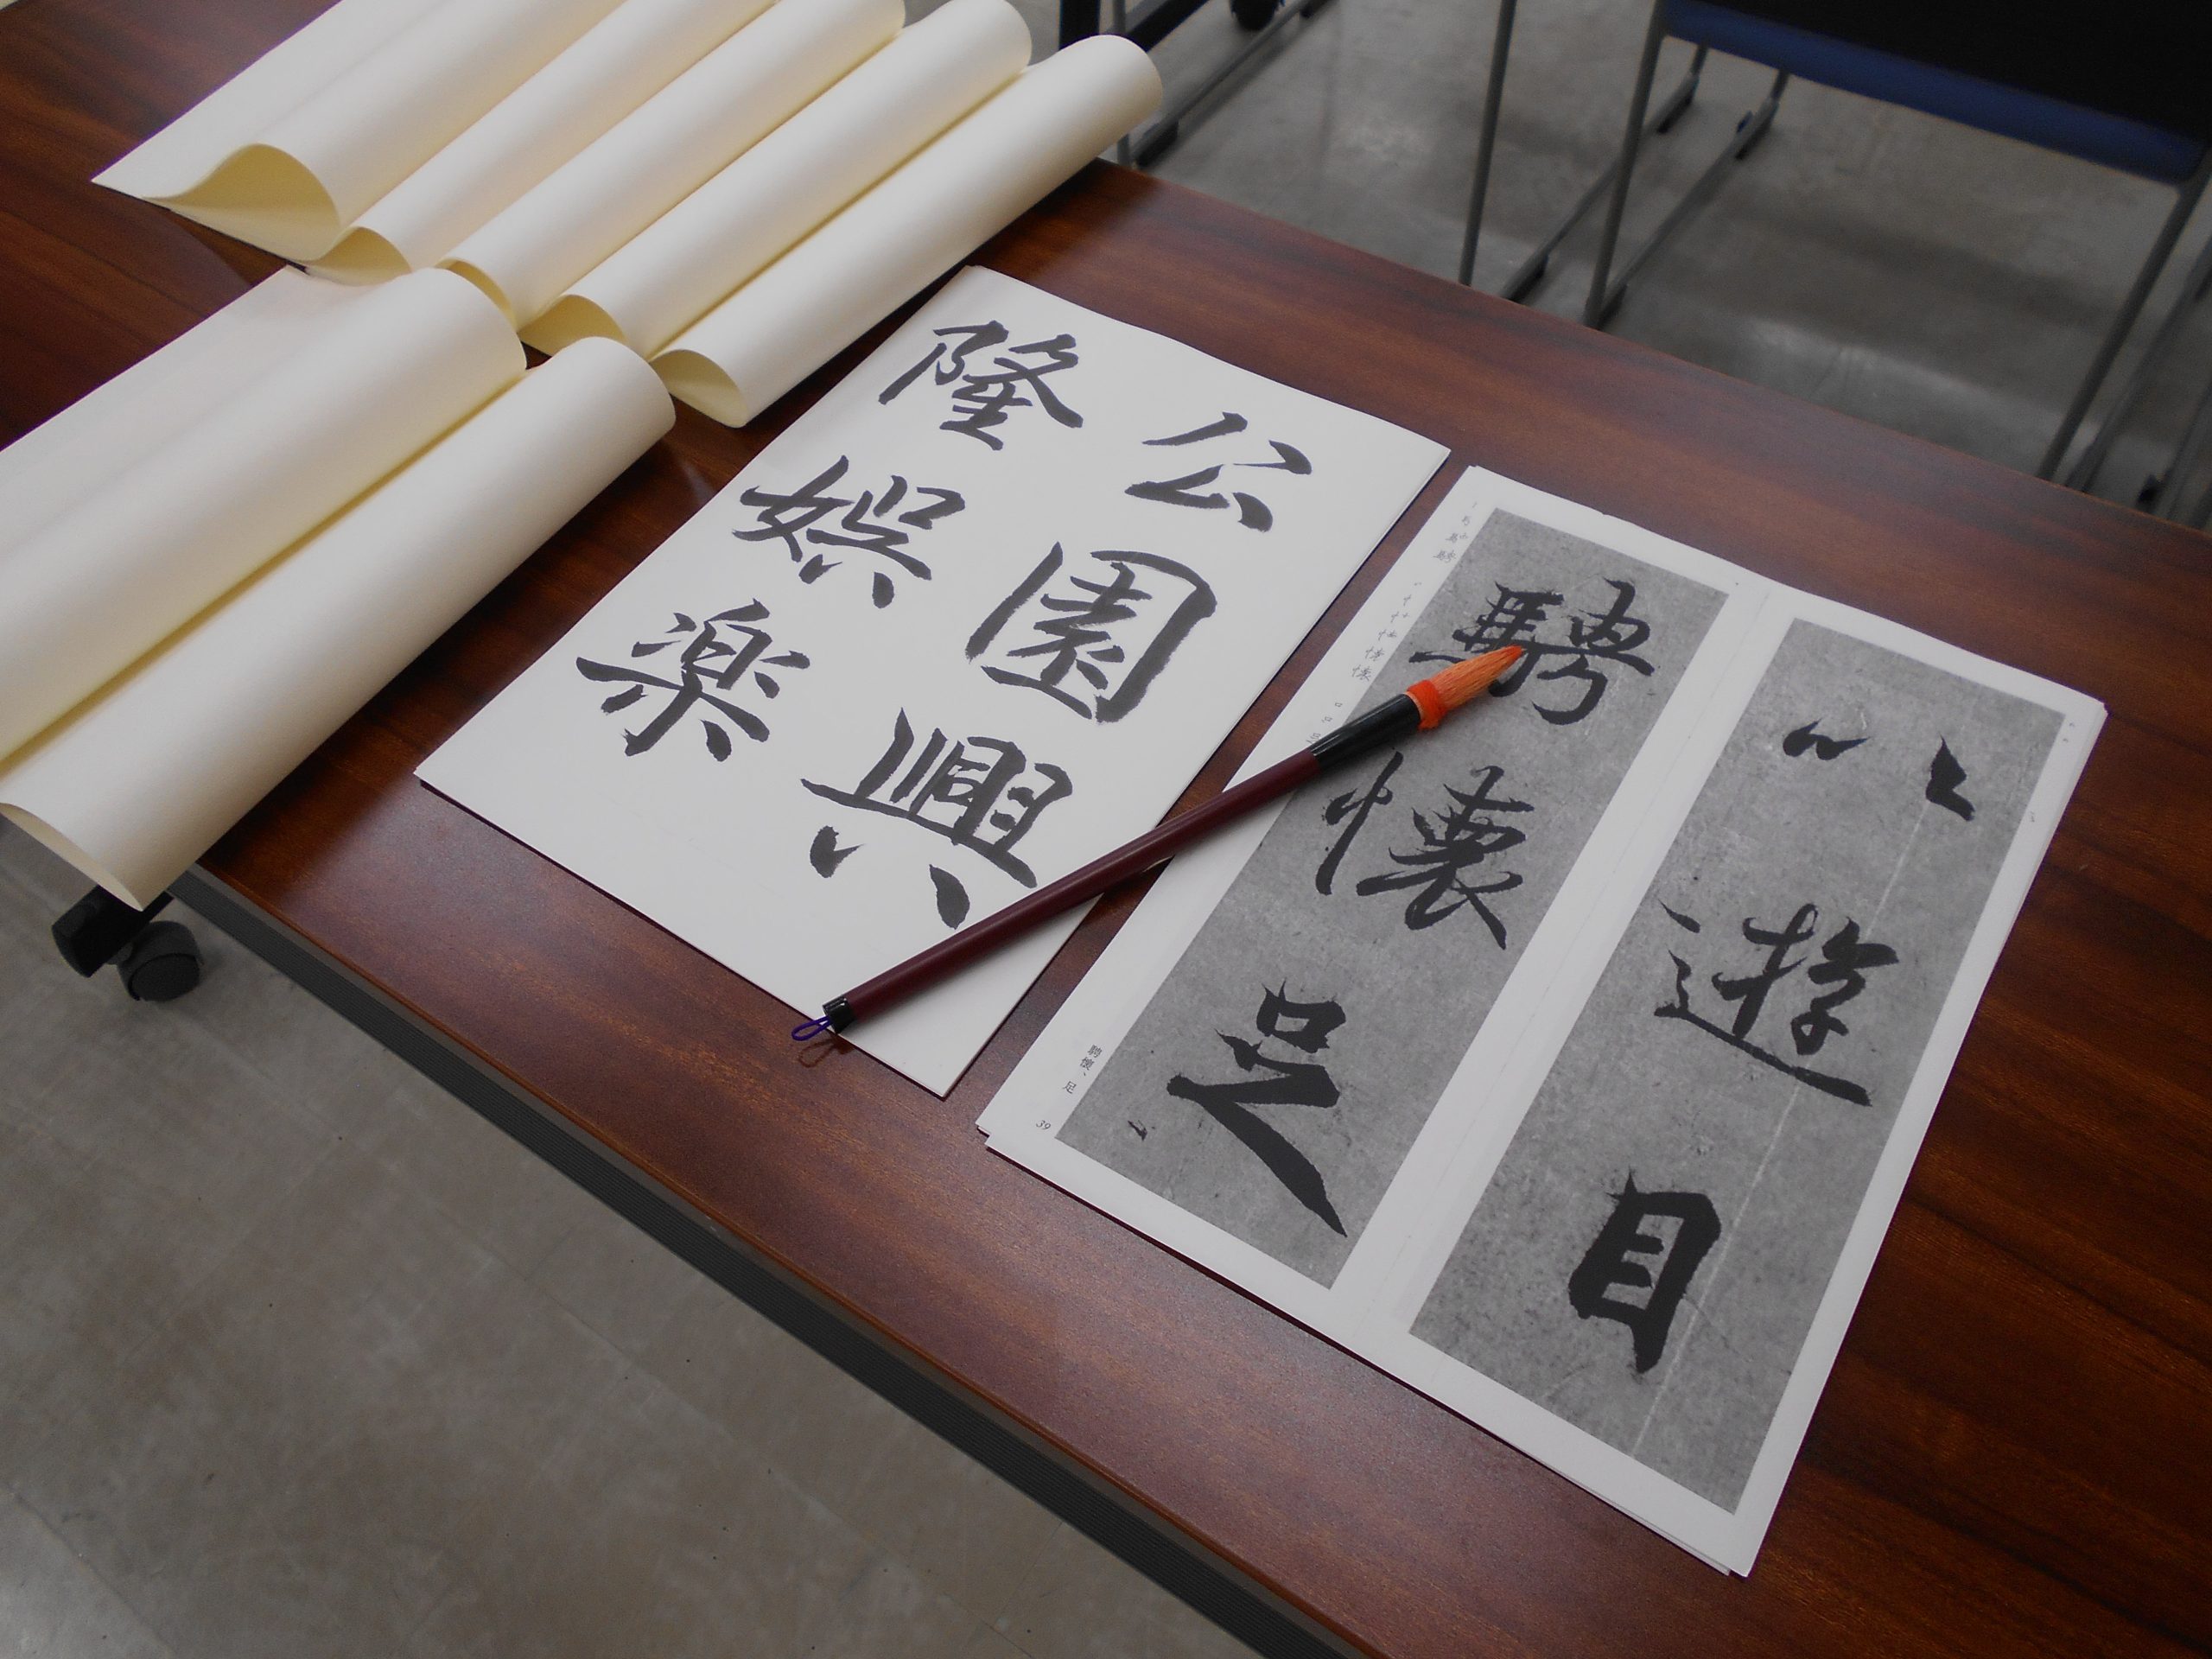 以遊目
騁懷足
騁懷、足
39
公園興
隆娯楽